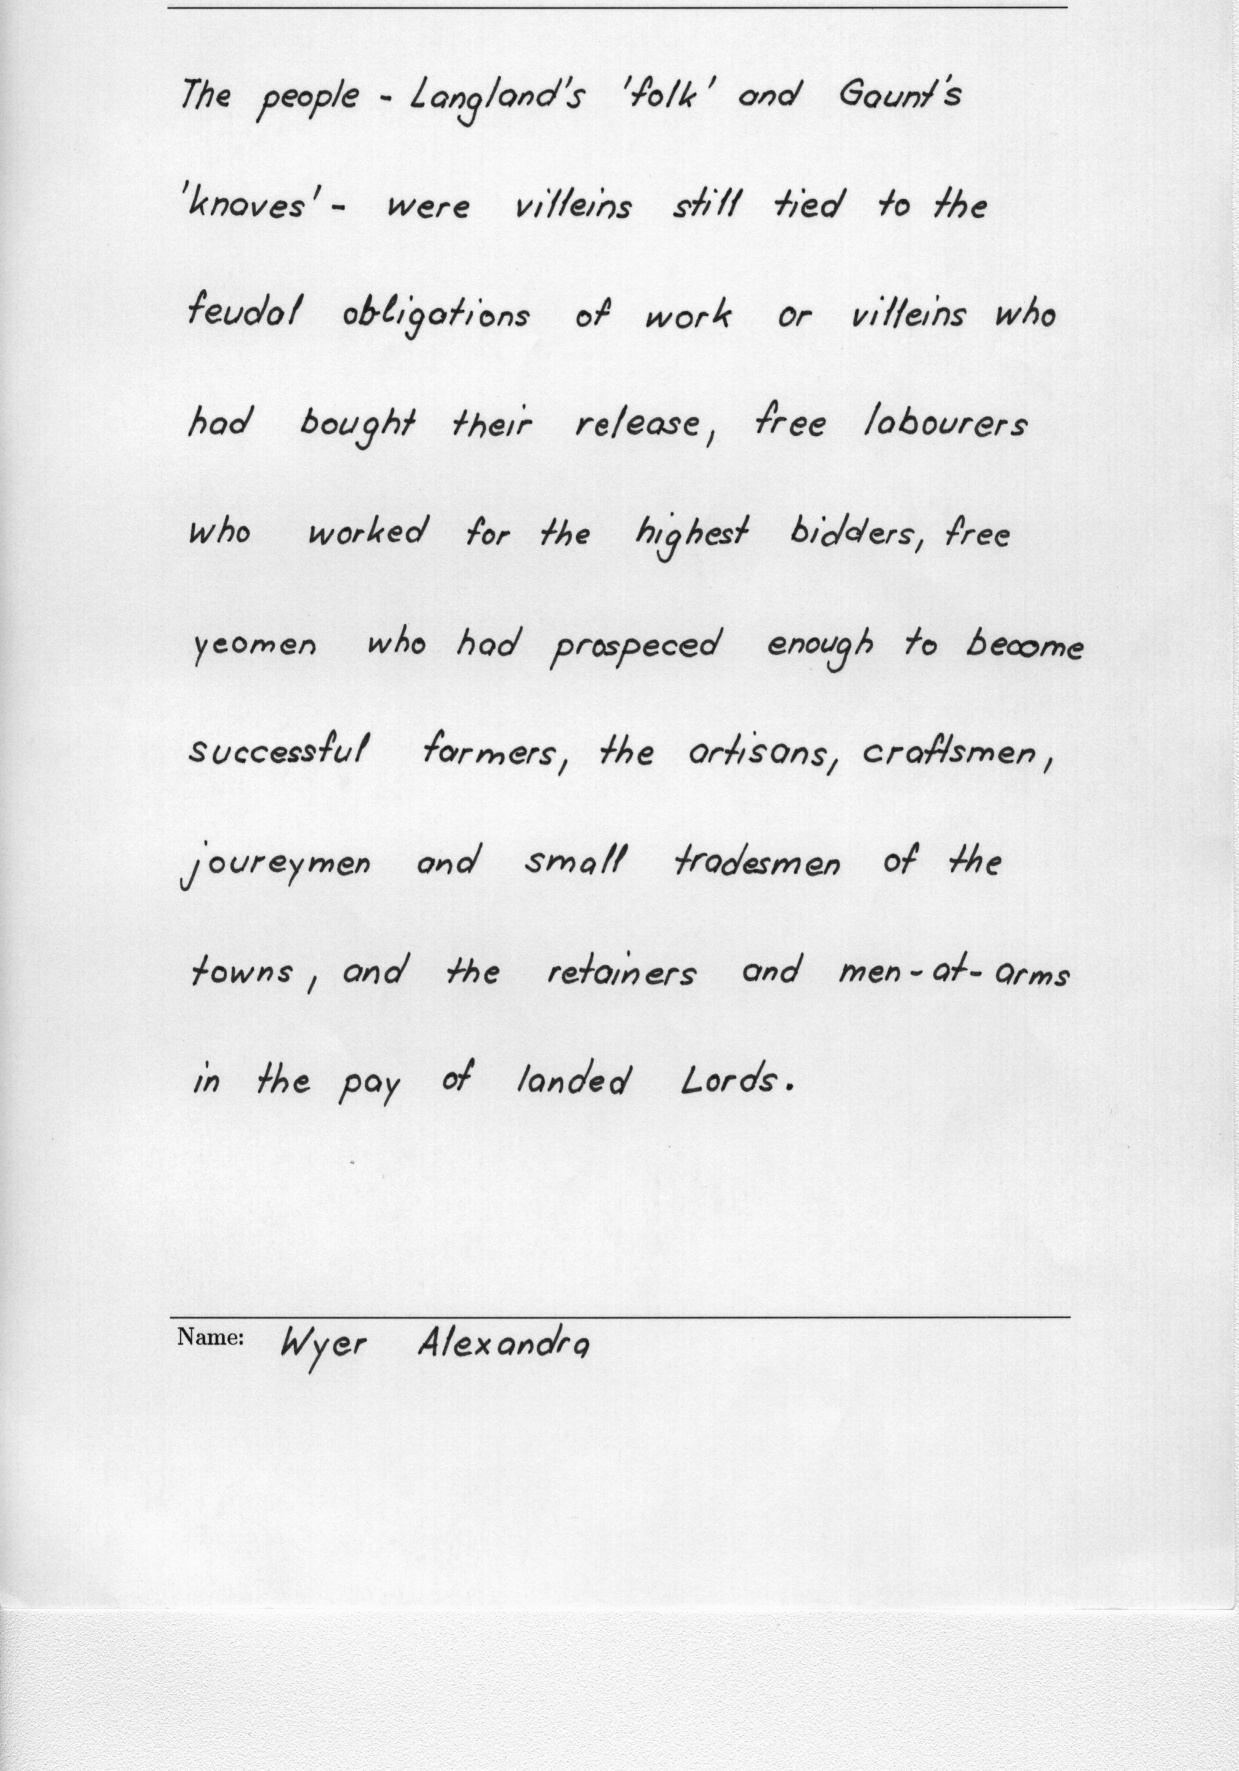 The people - Langland's 'folk' and Gaunt's
'knaves' - were villeins still tied to the
feudal obligations of work or villeins who
had bought their release, free labourers
who worked for the highest bidders, free
yeomen who had prospeced enough to become
successful farmers, the artisans, craftsmen,
joureymen and small tradesmen of the
towns, and the retainers and men-at-arms
in the pay of landed Lords.
Name: Wyer Alexandra